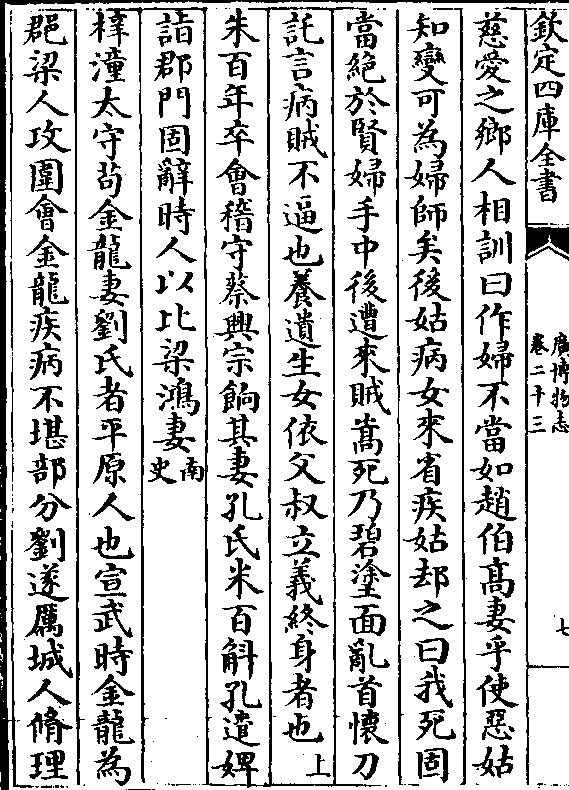 欽定四庫全書
廣博物志
卷二十三
七
慈愛之鄉人相訓曰作婦不當如趙伯髙妻乎使惡姑
知變可為婦師矣後姑病女來省疾姑却之曰我死固
當絶於賢婦手中後遭來賊嵩死乃碧塗面亂首懷刀
託言病賊不逼也養遺生女依父叔立義終身者也上
朱百年卒會稽守蔡興宗餉其妻孔氏米百斛孔遣婢
詣郡門固辭時人以比梁鴻妻南史
梓潼太守茍金龍妻劉氏者平原人也宣武時金龍為
郡梁人攻圍會金龍疾病不堪部分劉遂厲城人脩理